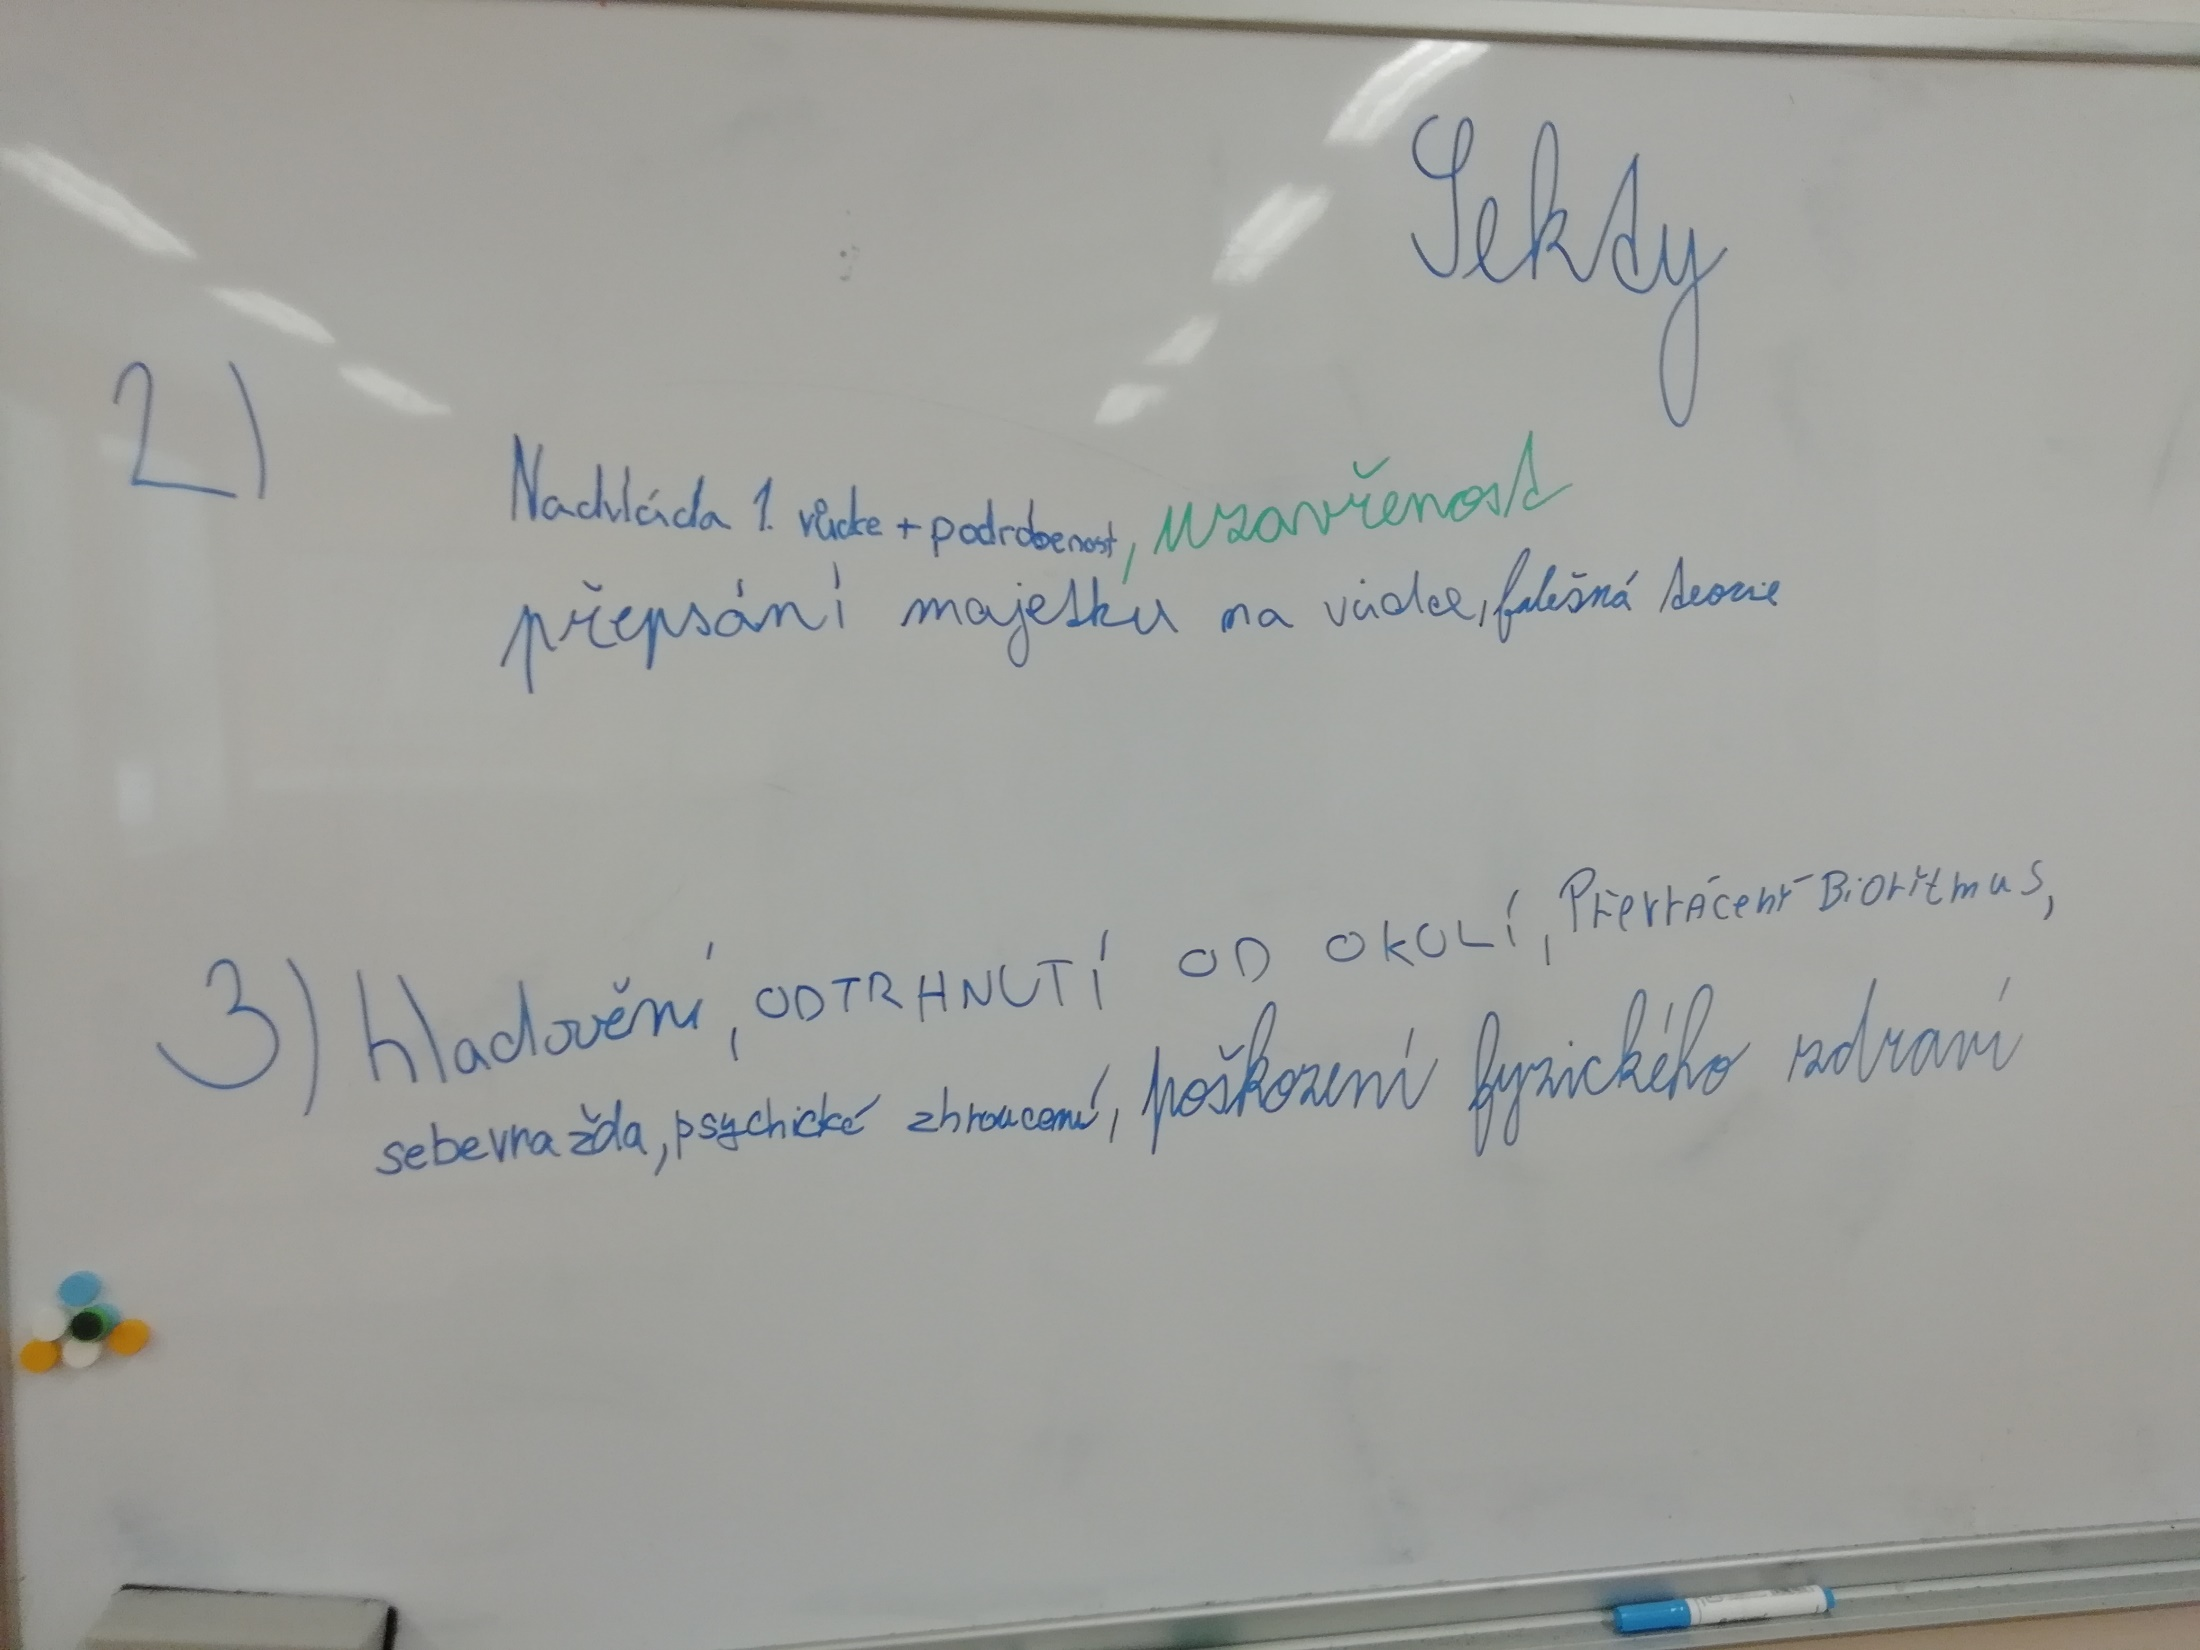 Sekty
2) Nadvláda 1. vůdce + podrobenost, uzavřenost
přepsání majetku na vůdce, falešná teorie
3) hladovění, ODTRHNUTÍ OD OKOLÍ, Převrácení Bioritmus,
sebevražda, psychické zhroucení, poškození fyzického zdraví